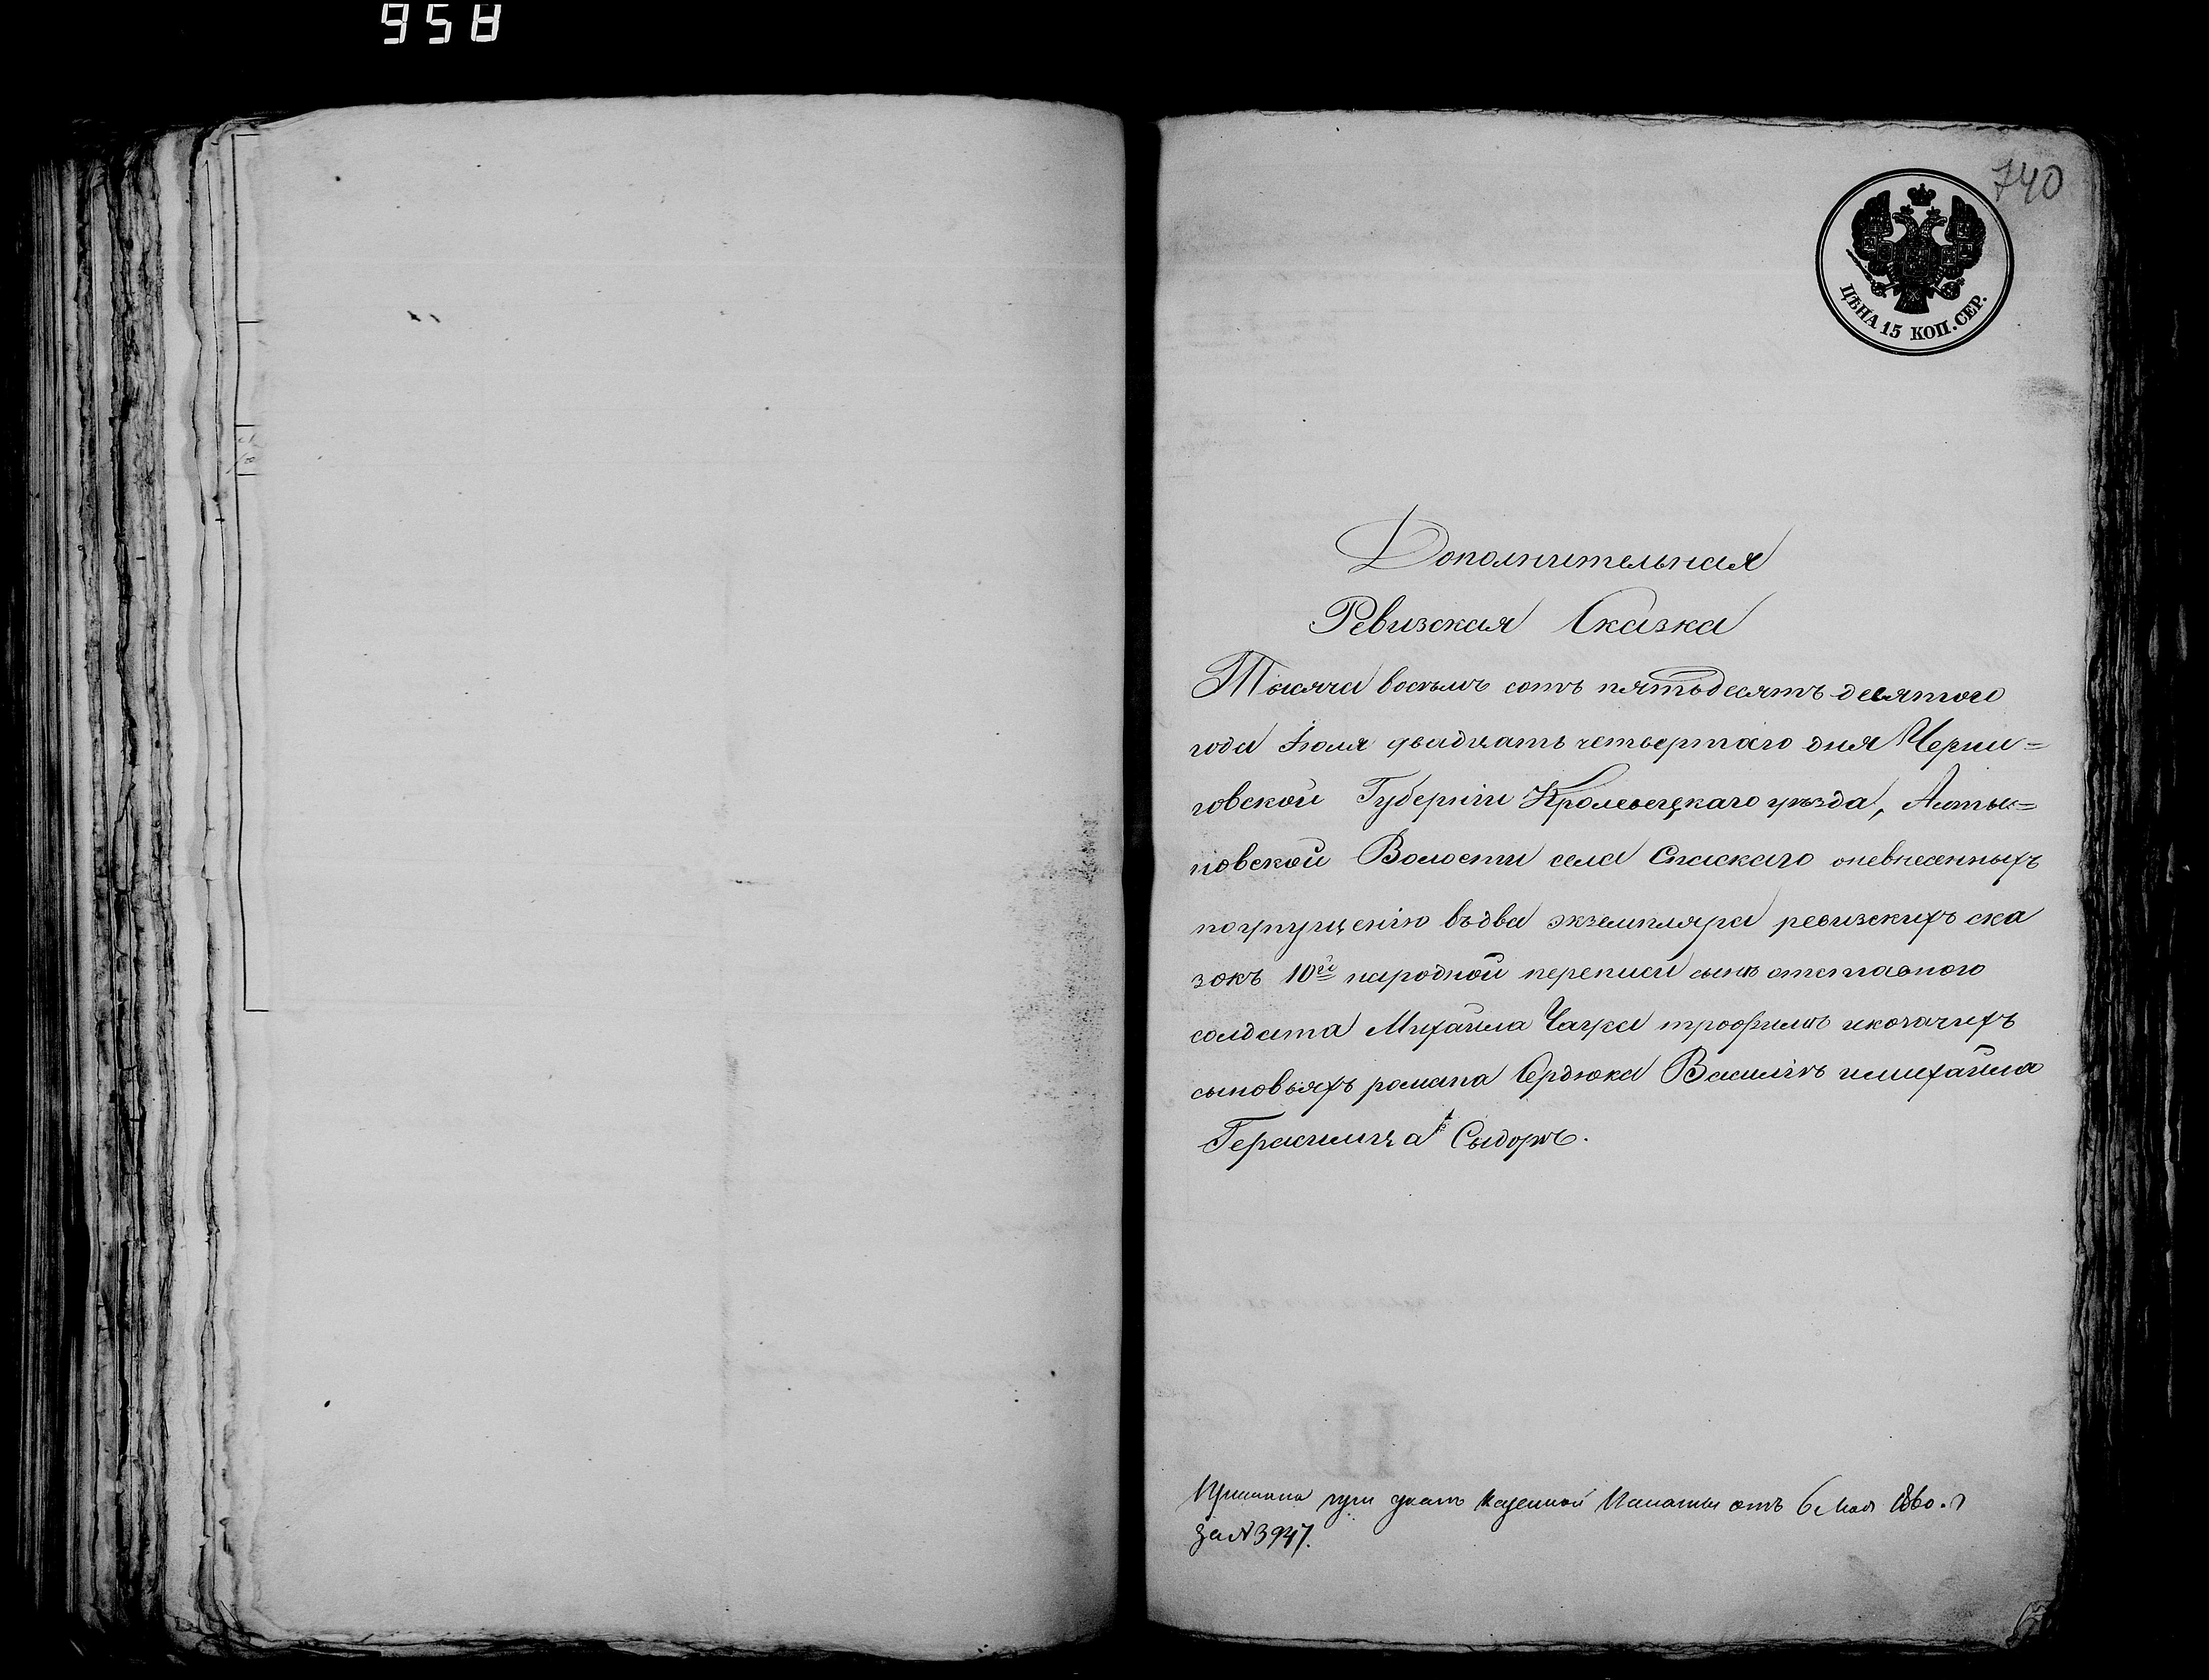 958
740
ЦѢНА 15 КОП. СЕР.
Дополнительная
Ревизская Сказка
Тысяча восѣмъ сотъ пятьдесятъ девятого
года Іюля двадцать четвертаго дня Черни=
говской Губерніи Кролевецкаго уѣзда, Алты=
новской Волости села Спаскаго оневнесенныхъ
поупущенію въдва экземпляра ревизскихъ ска
зокъ 10й народной переписи сынѣ отставного
солдата Михаила Чауса трофимѣ
сыновьяхъ романа Сердюка Василіѣ имихаила
Герасимца Сыдорѣ.
при указѣ Казенной Палаты отъ 6 Мая 1860. г
за N 3947.